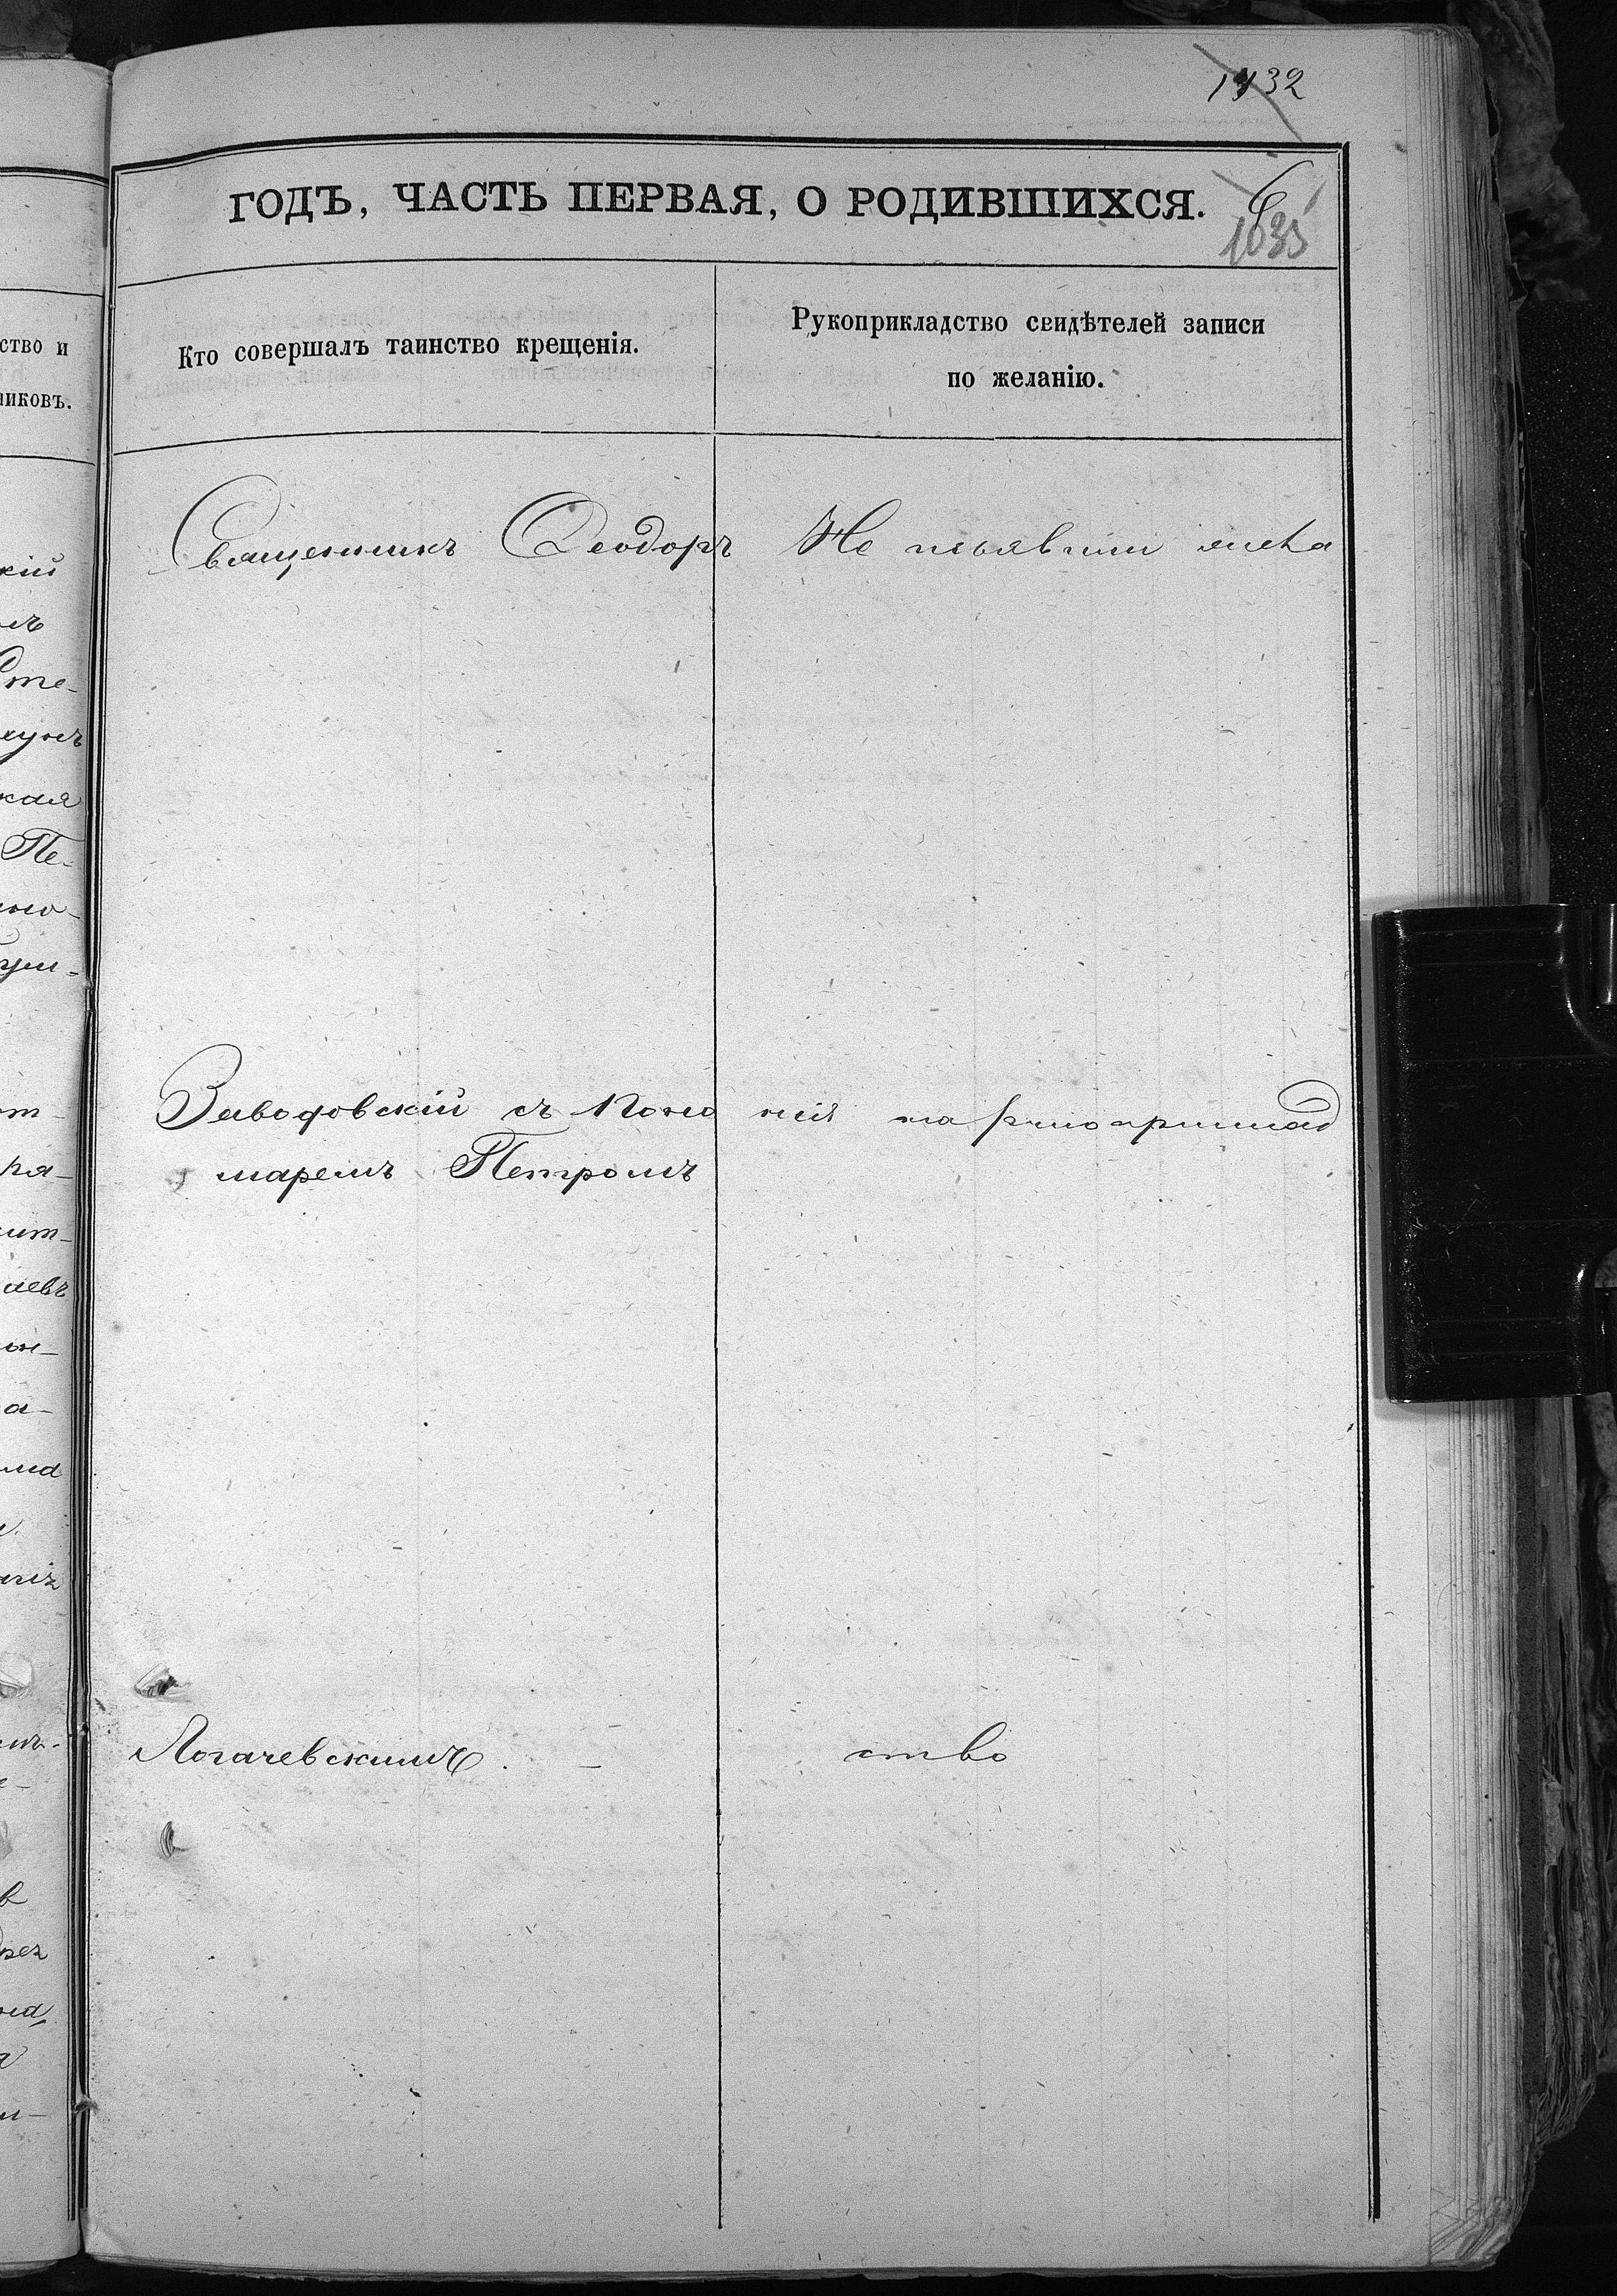 1132
ГОДЪ, ЧАСТЬ ПЕРВАЯ, О РОДИВШИХСЯ.
1035
ство и
никовъ.
Кто совершалъ таинство крещенія.
Рукоприкладство свидѣтелей записи
по желанію.
Священникъ Ѳеодоръ
Не изъявили жела
Заводовскій съ Поно
маремъ Петромъ
нія на рукоприклад
Логачевскимъ.
ство
кій
Сте-
хунъ
кая
Пе-